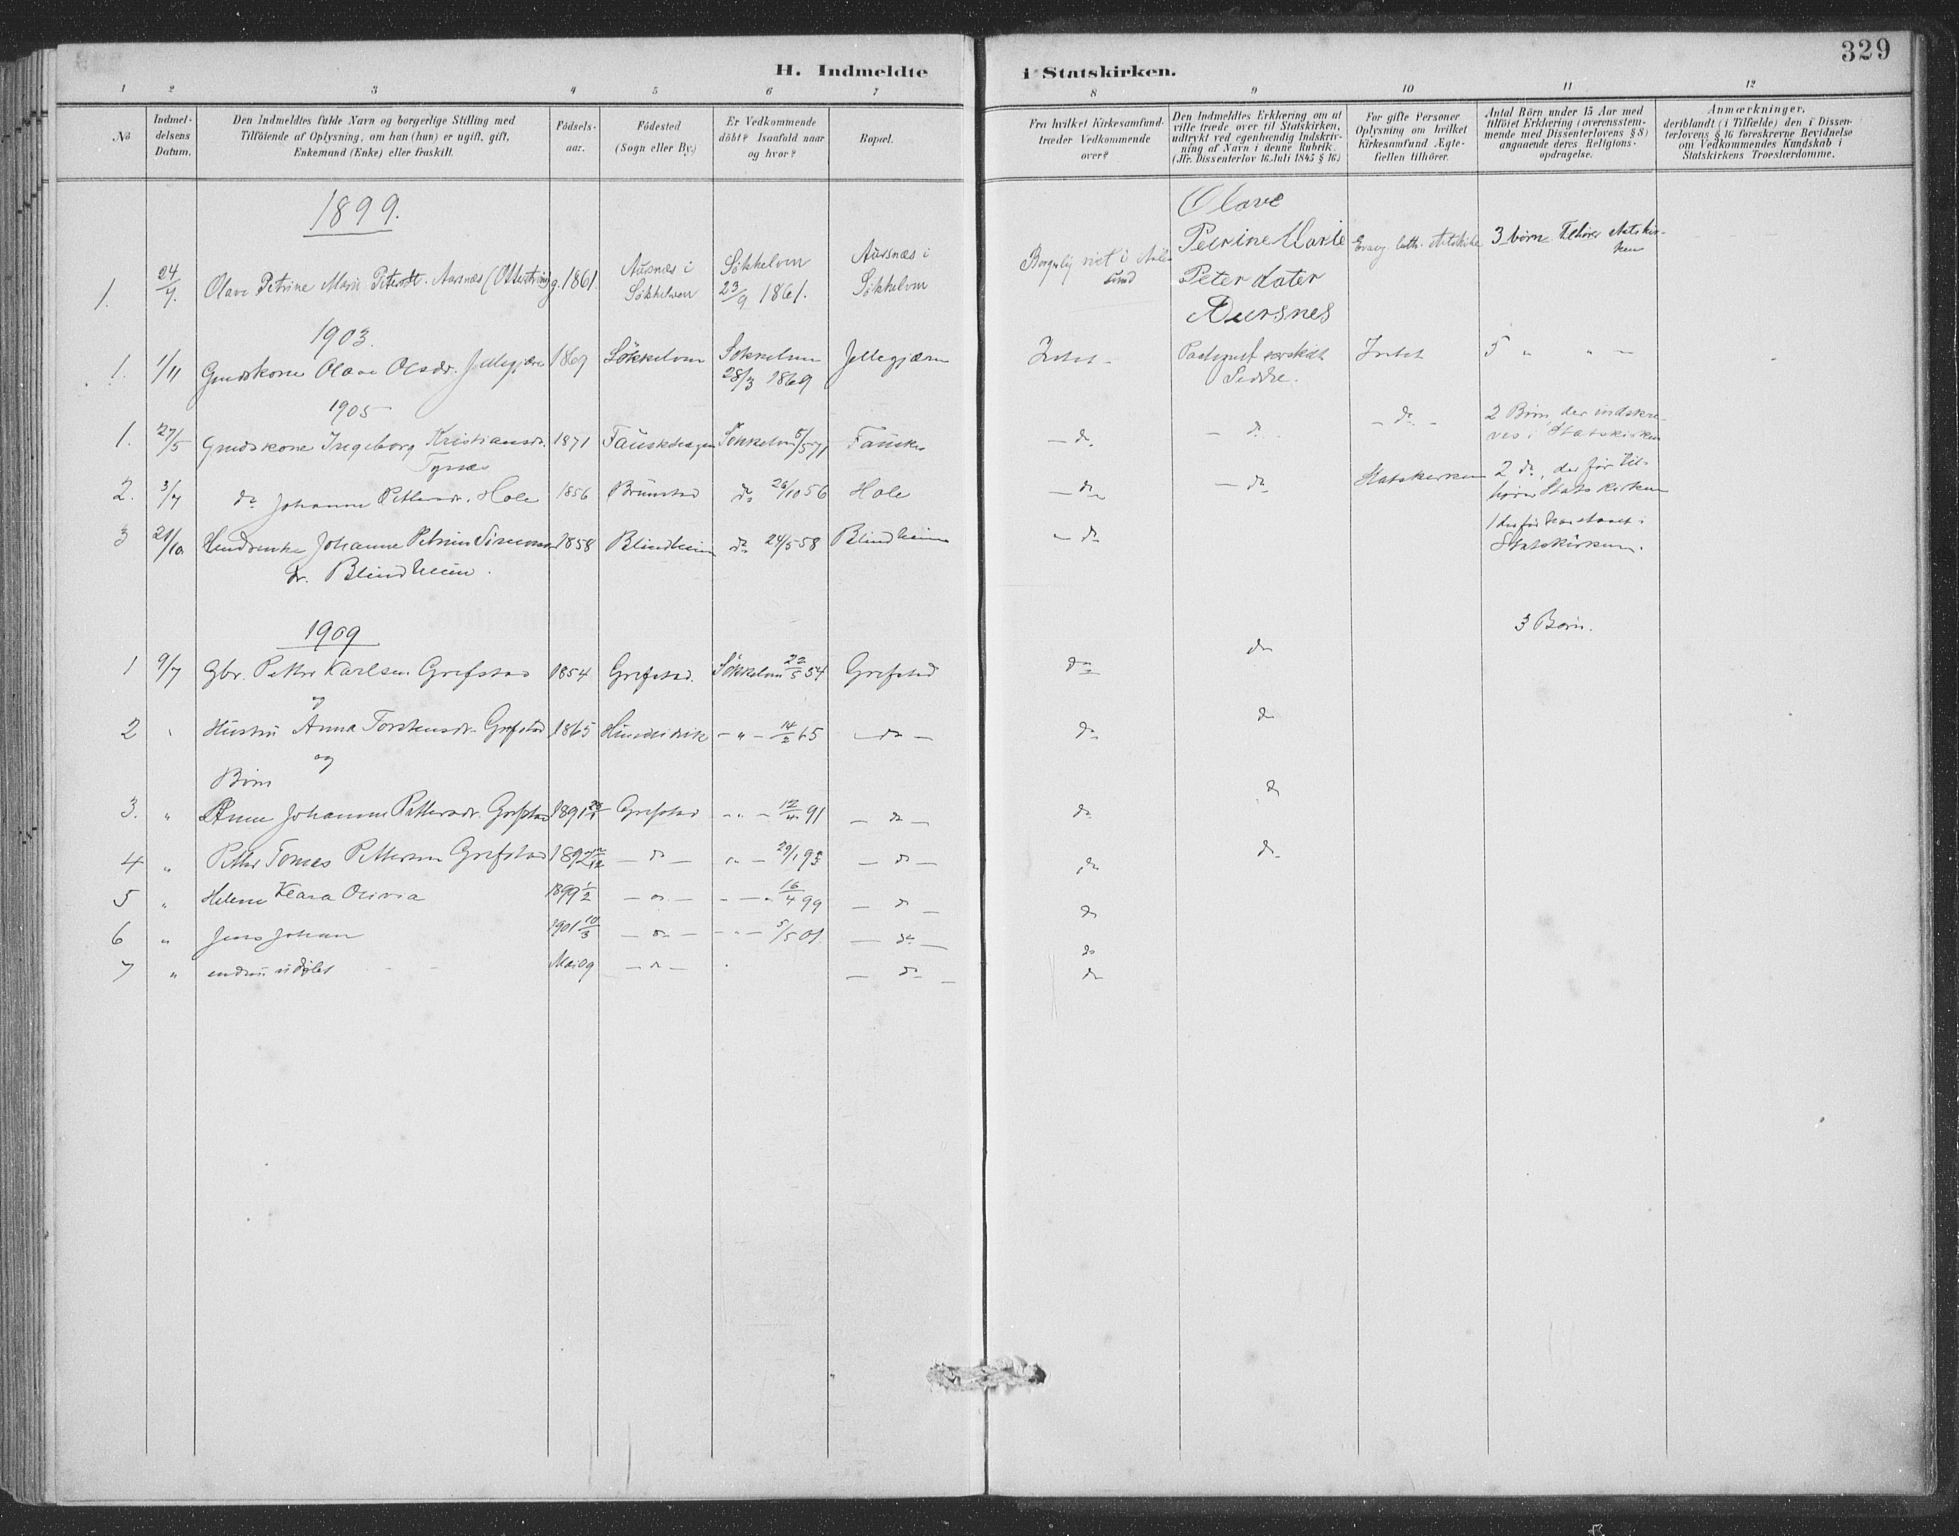 329
H. Indmeldte i Statskirken.
1 2 3 4 5 6 7 8 9 10 11 12
No
Indmel-
delsens
Datum.
Den Indmeldtes fulde Navn og borgerlige Stilling med
Tilföiende af Oplysning, om han (hun) er ugift, gift,
Enkemand (Enke) eller fraskilt.
Födsels-
aar.
Födested
(Sogn eller By.)
Er Vedkommende
döbt? Isaafald naar
og hvor?
Bopæl.
Fra hvilket Kirkesamfund
træder Vedkommende
over?
Den Indmeldtes Erklæring om at
ville træde over til Statskirken,
udtrykt ved egenhændig Indskriv-
ning af Navn i denne Rubrik.
(Jfr. Dissenterlov 16 Juli 1845 § 16.)
For gifte Personer
Oplysning om hvilket
Kirkesamfund Ægte-
fællen tilhörer.
Antal Börn under 15 Aar med
tilföiet Erklæring (overensstem-
mende med Dissenterlovens § 8)
angaaende deres Religions-
opdragelse.
Anmærkninger,
deriblandt (i Tilfælde) den i Dissen-
terlovens § 16 foreskrevne Bevidnelse
om Vedkommendes Kundskab i
Statskirkens Troeslærdomme.
1899.
1. 24/7. Olave Petrine Marie Petersdt. Aursnæs 1861.
Aursnæs i
Søkkelven
Søkkelven
23/9 1861.
Aursnæs i
Søkkelven
Olave
Petrine Marie
Peter dater
Aursnes
Evang. luth. Statskirke
3 børn tilhører Statskir-
ken
1903.
1. 1/11 Gmdskone Olave Olsdr. Jellegjæren 1869 Søkkelven Søkkelven
28/3 1869
Jellegjæren Intet - Intet 5 " " -
1905
1. 27/5 Gmdskone Ingeborg Kristiansdr.
Tynes
1871 Søkkelven 5/5 71 - do - do - do -
2 Børn, der indskre-
ves i Statskirken
2. 3/7 do Johanne Pettersdr. Hole 1856 Brunstad do 26/10 56 Hole - do - do Statskirken 2 do, der før til-
hører Statskirken
3 21/10 Johanne Petrine
dr. Blindheim.
1858 Blindheim do 24/5 58 Blindheim - do
Statskirken.
1909
3 Børn.
1 9/7 Gbr. Petter Karlsen Grefstad 1854 Grefstad. Søkkelven 22/5 54 Grefstad do do
og
2 " Hustru Anna Torstensdr. Grefstad 1865 - " - 14/2 65 - do - do do
og
Børn
3. " Anne Johanne Pettersdr. Grefstad 1891 Grefstad - " - 12/4 91 - do - do do
4 " Petter Tomas Pettersen Grefstad 1892 - do - " - 29/1 93 - do - do do
5 " Helene Klara Olivia 1899 1/2 - do - - " - 16/4 99 - do - do
6 " Jens Johan 1901 10/3 - do - - " - 5/5 01. - do - do
7 " endnu udøbt Mai 09 - do - - do - do